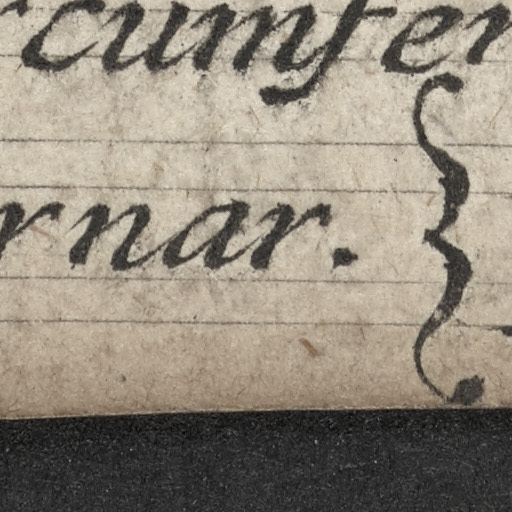 rcumfer
rnar. {